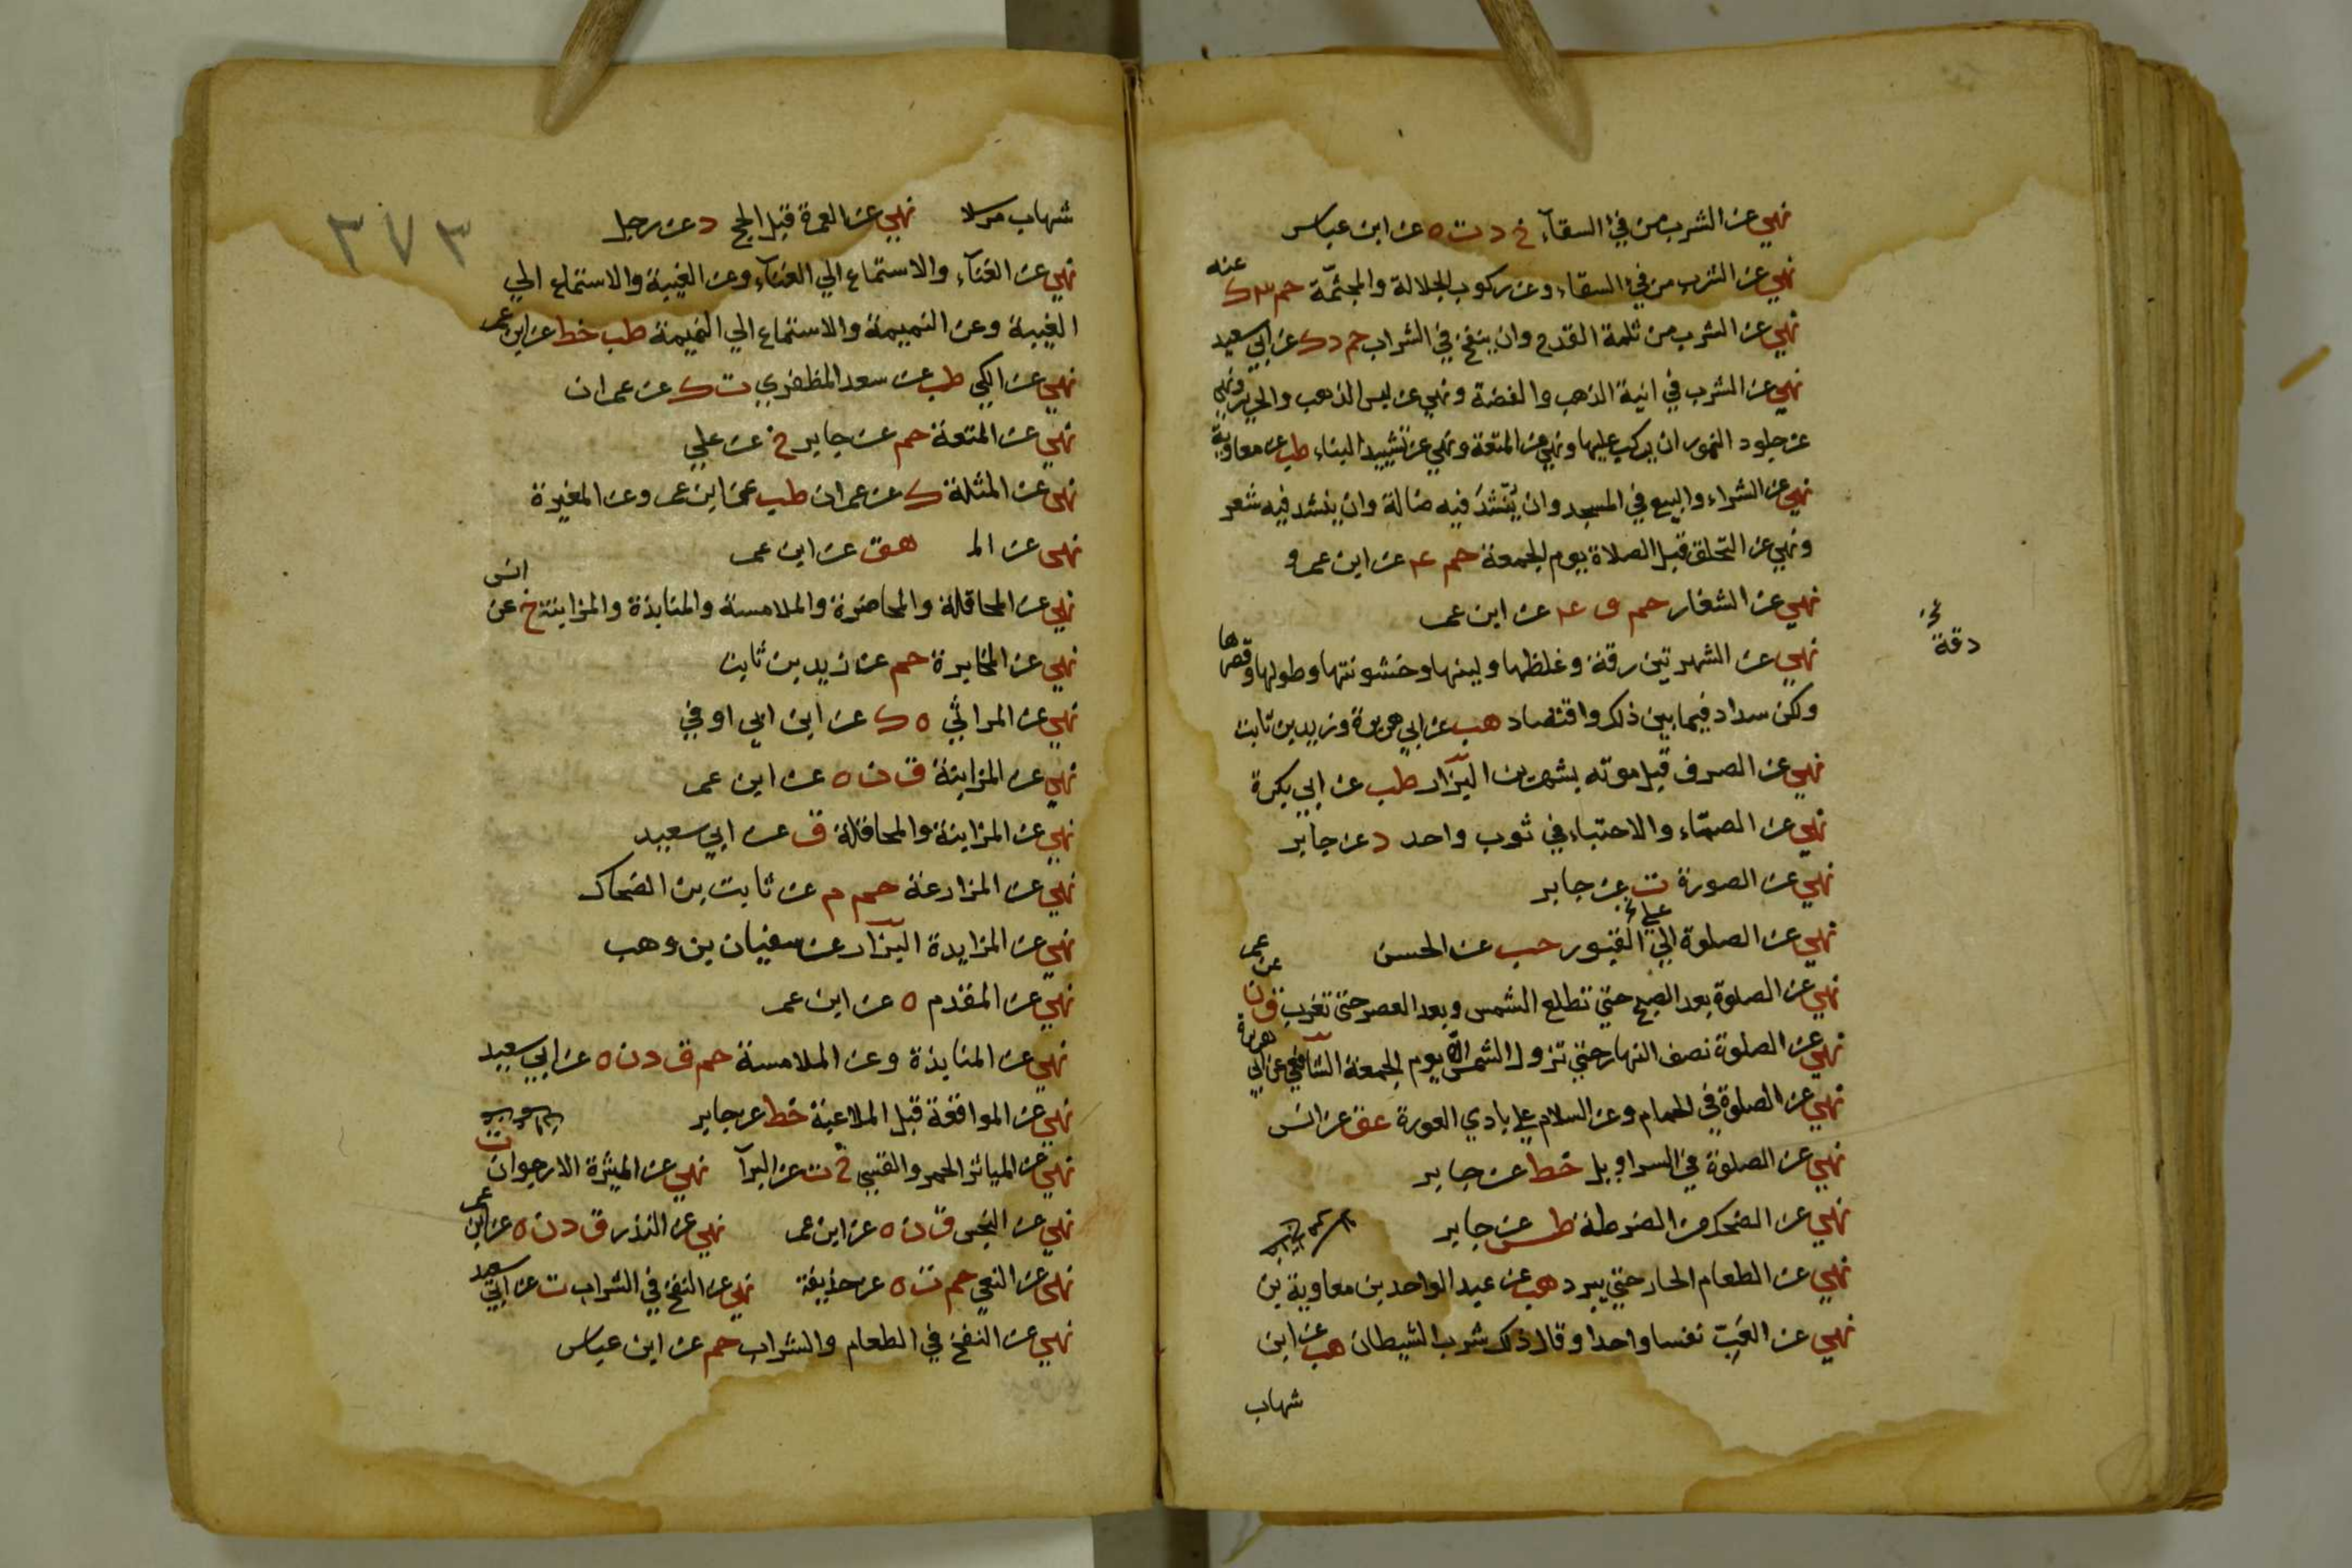 نهي عن الشرب من في السقآء خ د ت ه عن ابن عباس
نهي عن الشرب من في السقاء وعن ركوب الجلالة والمجثمّة حم ٣ ك عنه
نهي عن الشرب من ثلمة القدح وان ينفخ في الشراب حم د ك عن ابي سعيد
نهي عن الشرب في انية الذهب والفضة ونهي عن لبس الذهب والحرير ونهي
عن جلود النمور ان يركب عليها ونهي عن المتعة ونهي عن تشييد البناء طب عن معاوية
نهي عن الشراء والبيع في المسجد وان يّنشدَ فيه ضالة وان ينشد فيه شعر
ونهي عن التحلق قبل الصلاة يوم الجمعة حم ٤ عن ابن عمرو
نهي عن الشغار حم ق ٤ عن ابن عمر
دقة
نهي عن الشهرتين رقة وغلظها ولينها وخشونتها وطولها وقصرها
ولكن سداد فيما بين ذلك واقتصاد هب عن ابي هريرة وزيد بن ثابت
نهي عن الصرف قبل موته بشهرين البزّار طب عن ابي بكرة
نهي عن الصمّاء والاحتباء في ثوب واحد د عن جابر
نهي عن الصورة ت عن جابر
نهي عن الصلوة الي القبور حب عن الحسن
نهي عن الصلوة بعد الصبح حتي تطلع الشمس وبعد العصر حتي تغرب ق ن عن عمر
نهي عن الصلوة نصف النهار حتي تزول الشمس الا يوم الجمعة الشافعي عن ابي هريرة
نهي عن الصلوة في الحمام وعن السلام علي بادي العورة عق عن انس
نهي عن الصلوة في السراويل خط عن جابر
نهي عن الضحك من الضرطة طس عن جابر
نهي عن الطعام الحار حتي يبرد هب عن عبد الواحد بن معاوية بن
نهي عن العَبِّ نفسا واحدا وقال ذلك شرب الشيطان هب عن ابن
شهاب
٣٧٣
شهاب مرسلا نهي عن العمرة قبل الحج د عن رجل
نهي عن الغنآء والاستماع الي الغنآء وعن الغيبة والاستماع الي
الغيبة وعن النميمة والاستماع الي النميمة طب خط عن ابن عمر
نهي عن الكي طب عن سعد المظفري ت ك عن عمران
نهي عن المتعة حم عن جابر خ عن علي
نهي عن المثلة ك عن عمران طب عن ابن عمر وعن المغيرة
نهي عن الم هق عن ابن عمر
نهي عن المحاقلة والمخاضرة والملامسة والمنابذة والمزابنة خ عن انس
نهي عن المخابرة حم عن زيد بن ثابت
نهي عن المراثي ه ك عن ابن ابي اوفي
نهي عن المزابنة ق ن ه عن ابن عمر
نهي عن المزابنة والمحاقلة ق عن ابي سعيد
نهي عن المزارعة حم م عن ثابت بن الضحاك
نهي عن المزايدة البزّار عن سفيان بن وهب
نهي عن المفدم ه عن ابن عمر
نهي عن المنابذة وعن الملامسة حم ق د ن ه عن ابي سعيد
نهي عن المواقعة قبل الملاعبة خط عن جابر
نهي عن المياثر الحمر والقسي خ ت عن البرآ نهي عن الميثرة الارجوان ت
نهي عن النجش ق ن ه عن ابن عمر نهي عن النذر ق د ن ه عن ابن عمر
نهي عن النعي حم ت ه عن حذيفة نهي عن النفخ في الشراب ت عن ابي سعيد
نهي عن النفخ في الطعام والشراب حم عن ابن عباس